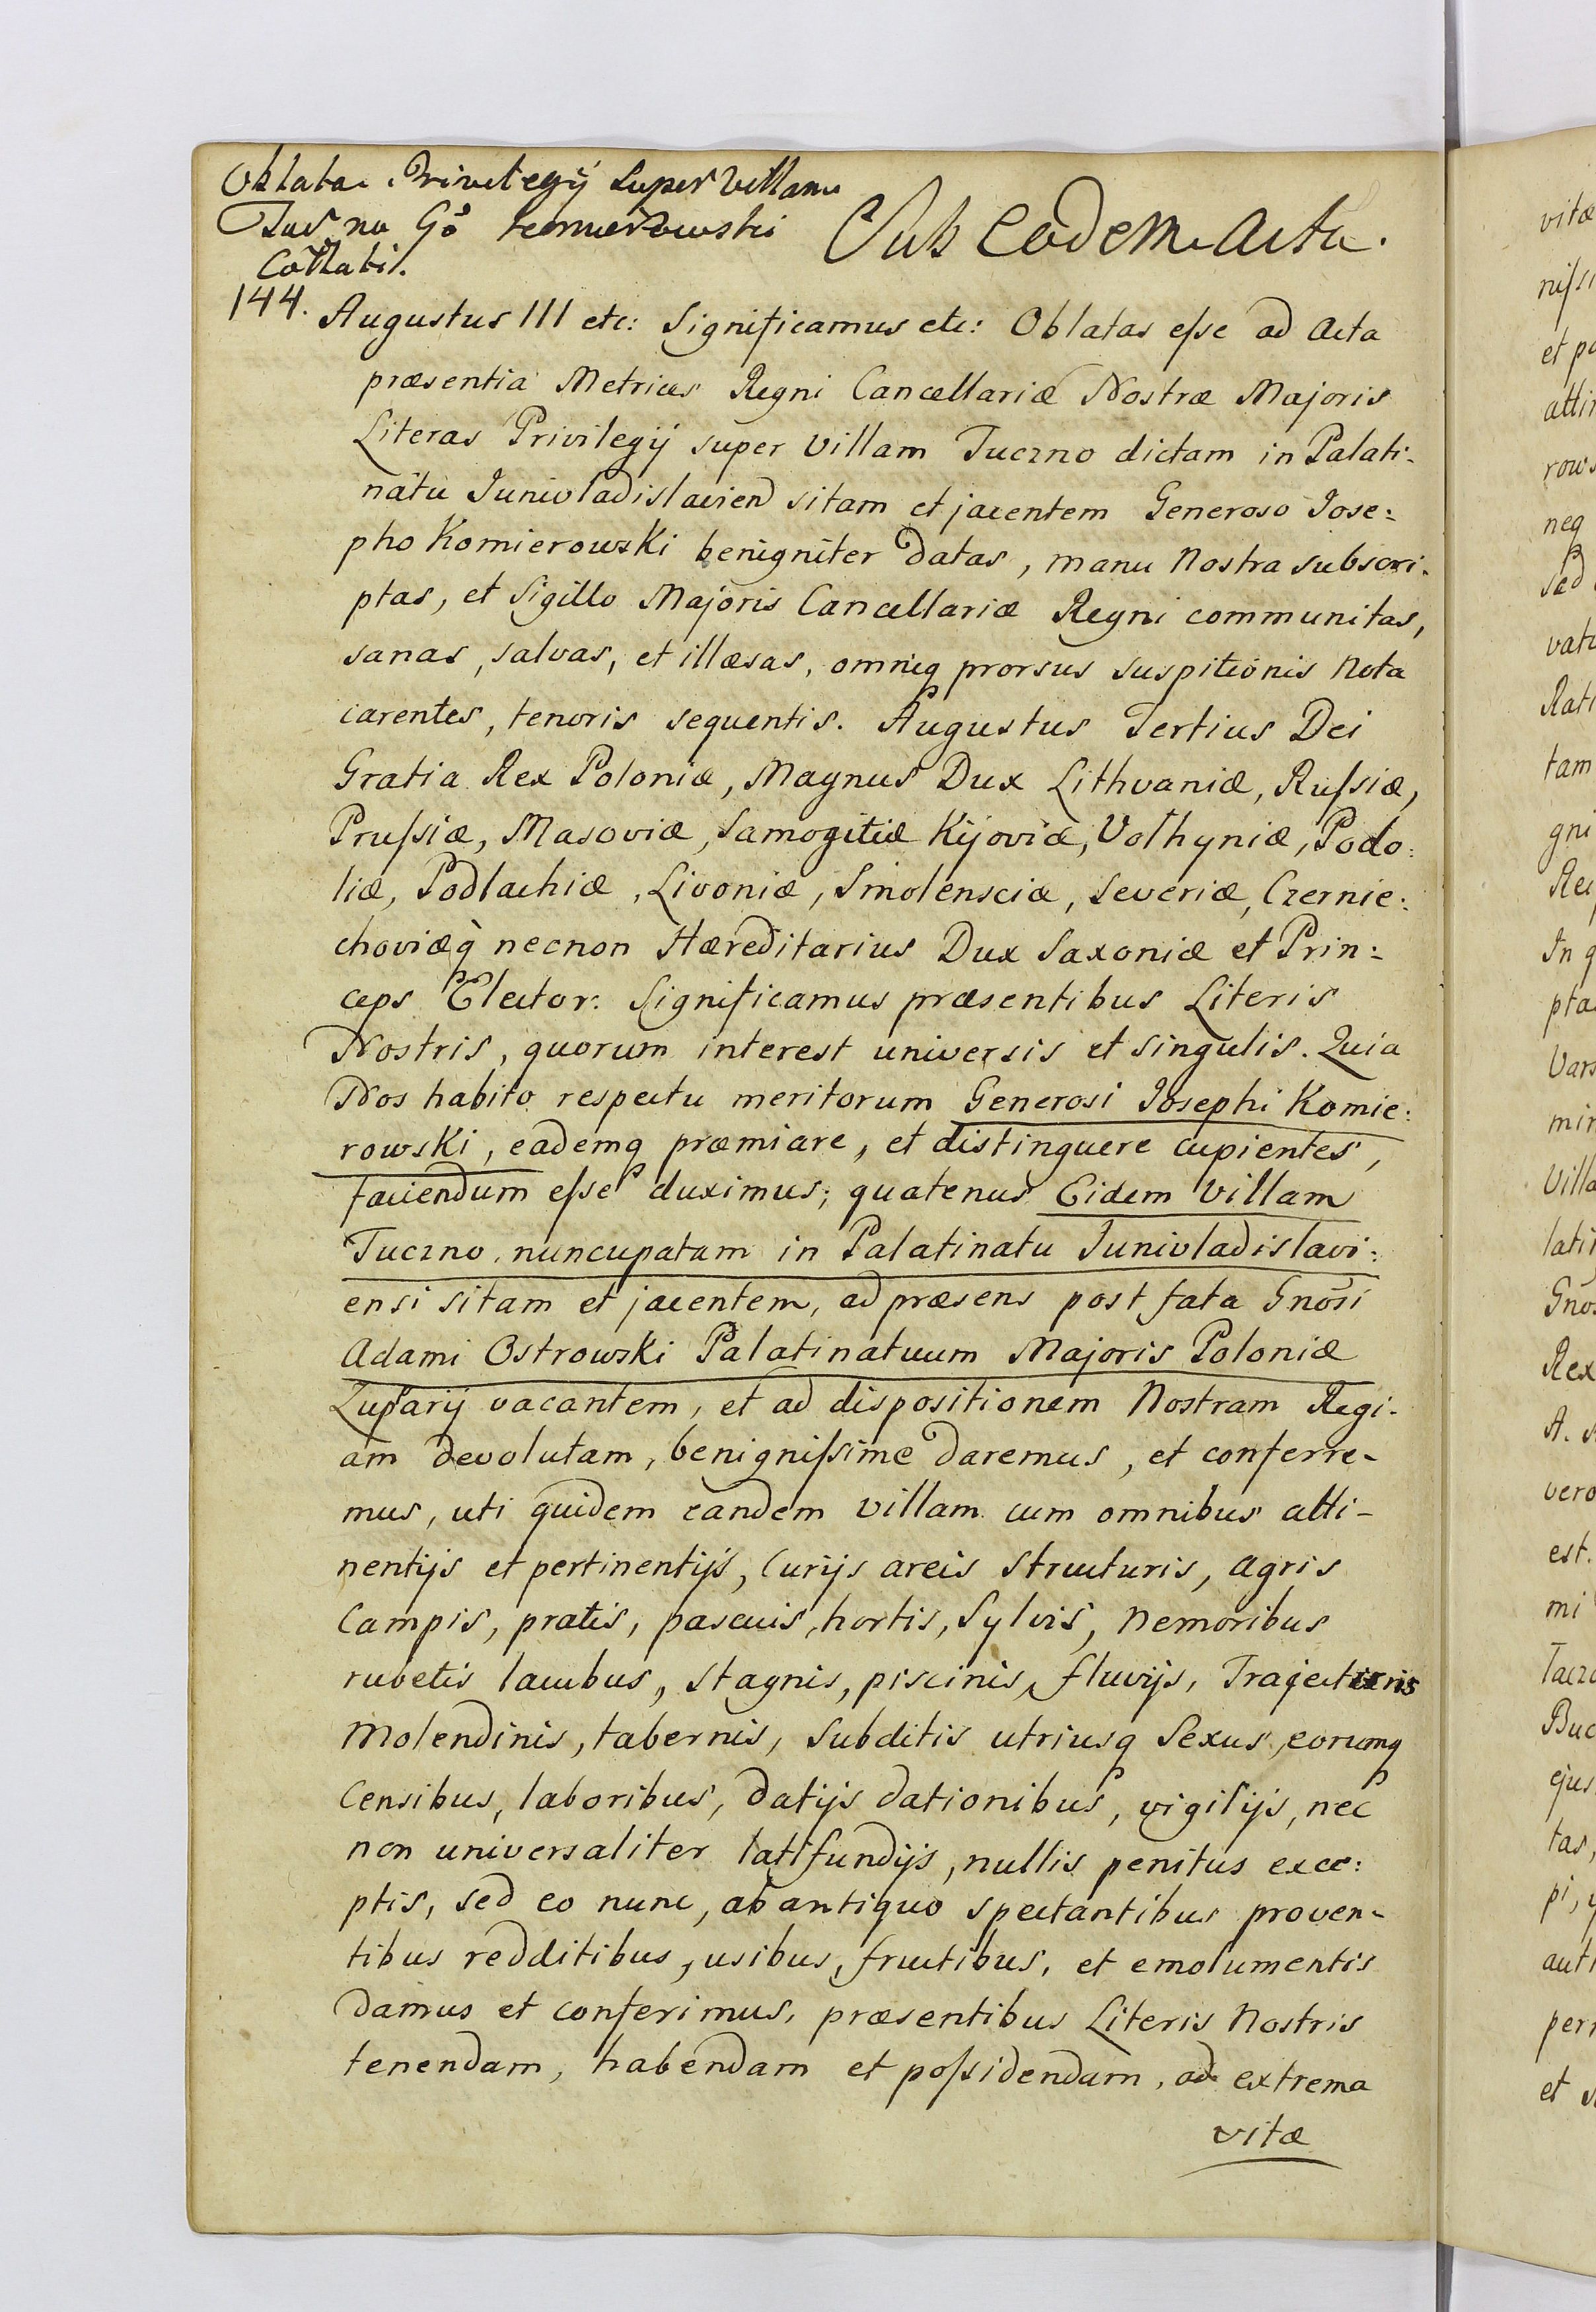 Oblata Privilegij super Villam
Tuczno Gō Komierowski
Collati.
Sub eodem Actu.
144. Augustus III etc: Significamus etc: Oblatas eſse ad Acta
præsentia Metrices Regni Cancellariæ Nostræ Majoris
Literas Privilegij super Villam Tuczno dictam in Palati-
natu Junivladislavien sitam et jacentem Generoso Jose:
pho Komierowski benigniter datas, manu Nostra subscri-
ptas, et Sigillo Majoris Cancellariæ Regni communitas,
sanas, salvas, et illæsas, omniq prorsus suspitionis nota
carentes, tenoris sequentis. Augustus Tertius Dei
Gratia Rex Poloniæ, Magnus Dux Lithvaniæ, Ruſsiæ,
Pruſsiæ, Masoviæ, Samogitiæ Kijoviæ, Volhyniæ, Podo:
liæ, Podlachiæ, Livoniæ, Smolensciæ, Severiæ, Czernie:
choviæq necnon Hæreditarius Dux Saxoniæ et Prin:
ceps Elector: Significamus præsentibus Literis
Nostris, quorum interest universis et singulis. Quia
Nos habito respectu meritorum Generosi Josephi Komie:
rowski, eademq præmiare, et distinguere cupientes,
faciendum eſse duximus; quatenus Eidem Villam
Tuczno nuncupatam in Palatinatu Junivladislavi:
ensi sitam et jacentem, ad præsens post fata Gnōsi
Adami Ostrowski Palatinatuum Majoris Poloniæ
Zuparij vacantem, et ad dispositionem Nostram Regi-
am devolutam, benigniſsime daremus, et conferre-
mus, uti quidem eandem Villam cum omnibus atti-
nentijs et pertinentijs, Curijs areis structuris, agris
Campis, pratis, pascuis, hortis, Sylvis, Nemoribus
rubetis lacubus, stagnis, piscinis, fluvijs, Trajecturis
Molendinis, tabernis, subditis utriusq Sexus, eorumq
Censibus, laboribus, datijs dationibus, vigilijs, nec
non universaliter latifundijs, nullis penitus exce:
ptis, sed eo nunc, ab antiquo spectantibus proven-
tibus redditibus, usibus, fructibus, et emolumentis
damus et conferimus, præsentibus Literis Nostris
tenendam, habendam et poſsidendam, ad extrema
vitæ